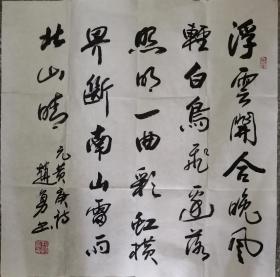 浮雲開合晚風
輕白鳥飛邊落
照明一曲彩虹橫
界斷南山雷雨
北山晴
元黄庚詩
趙勇书